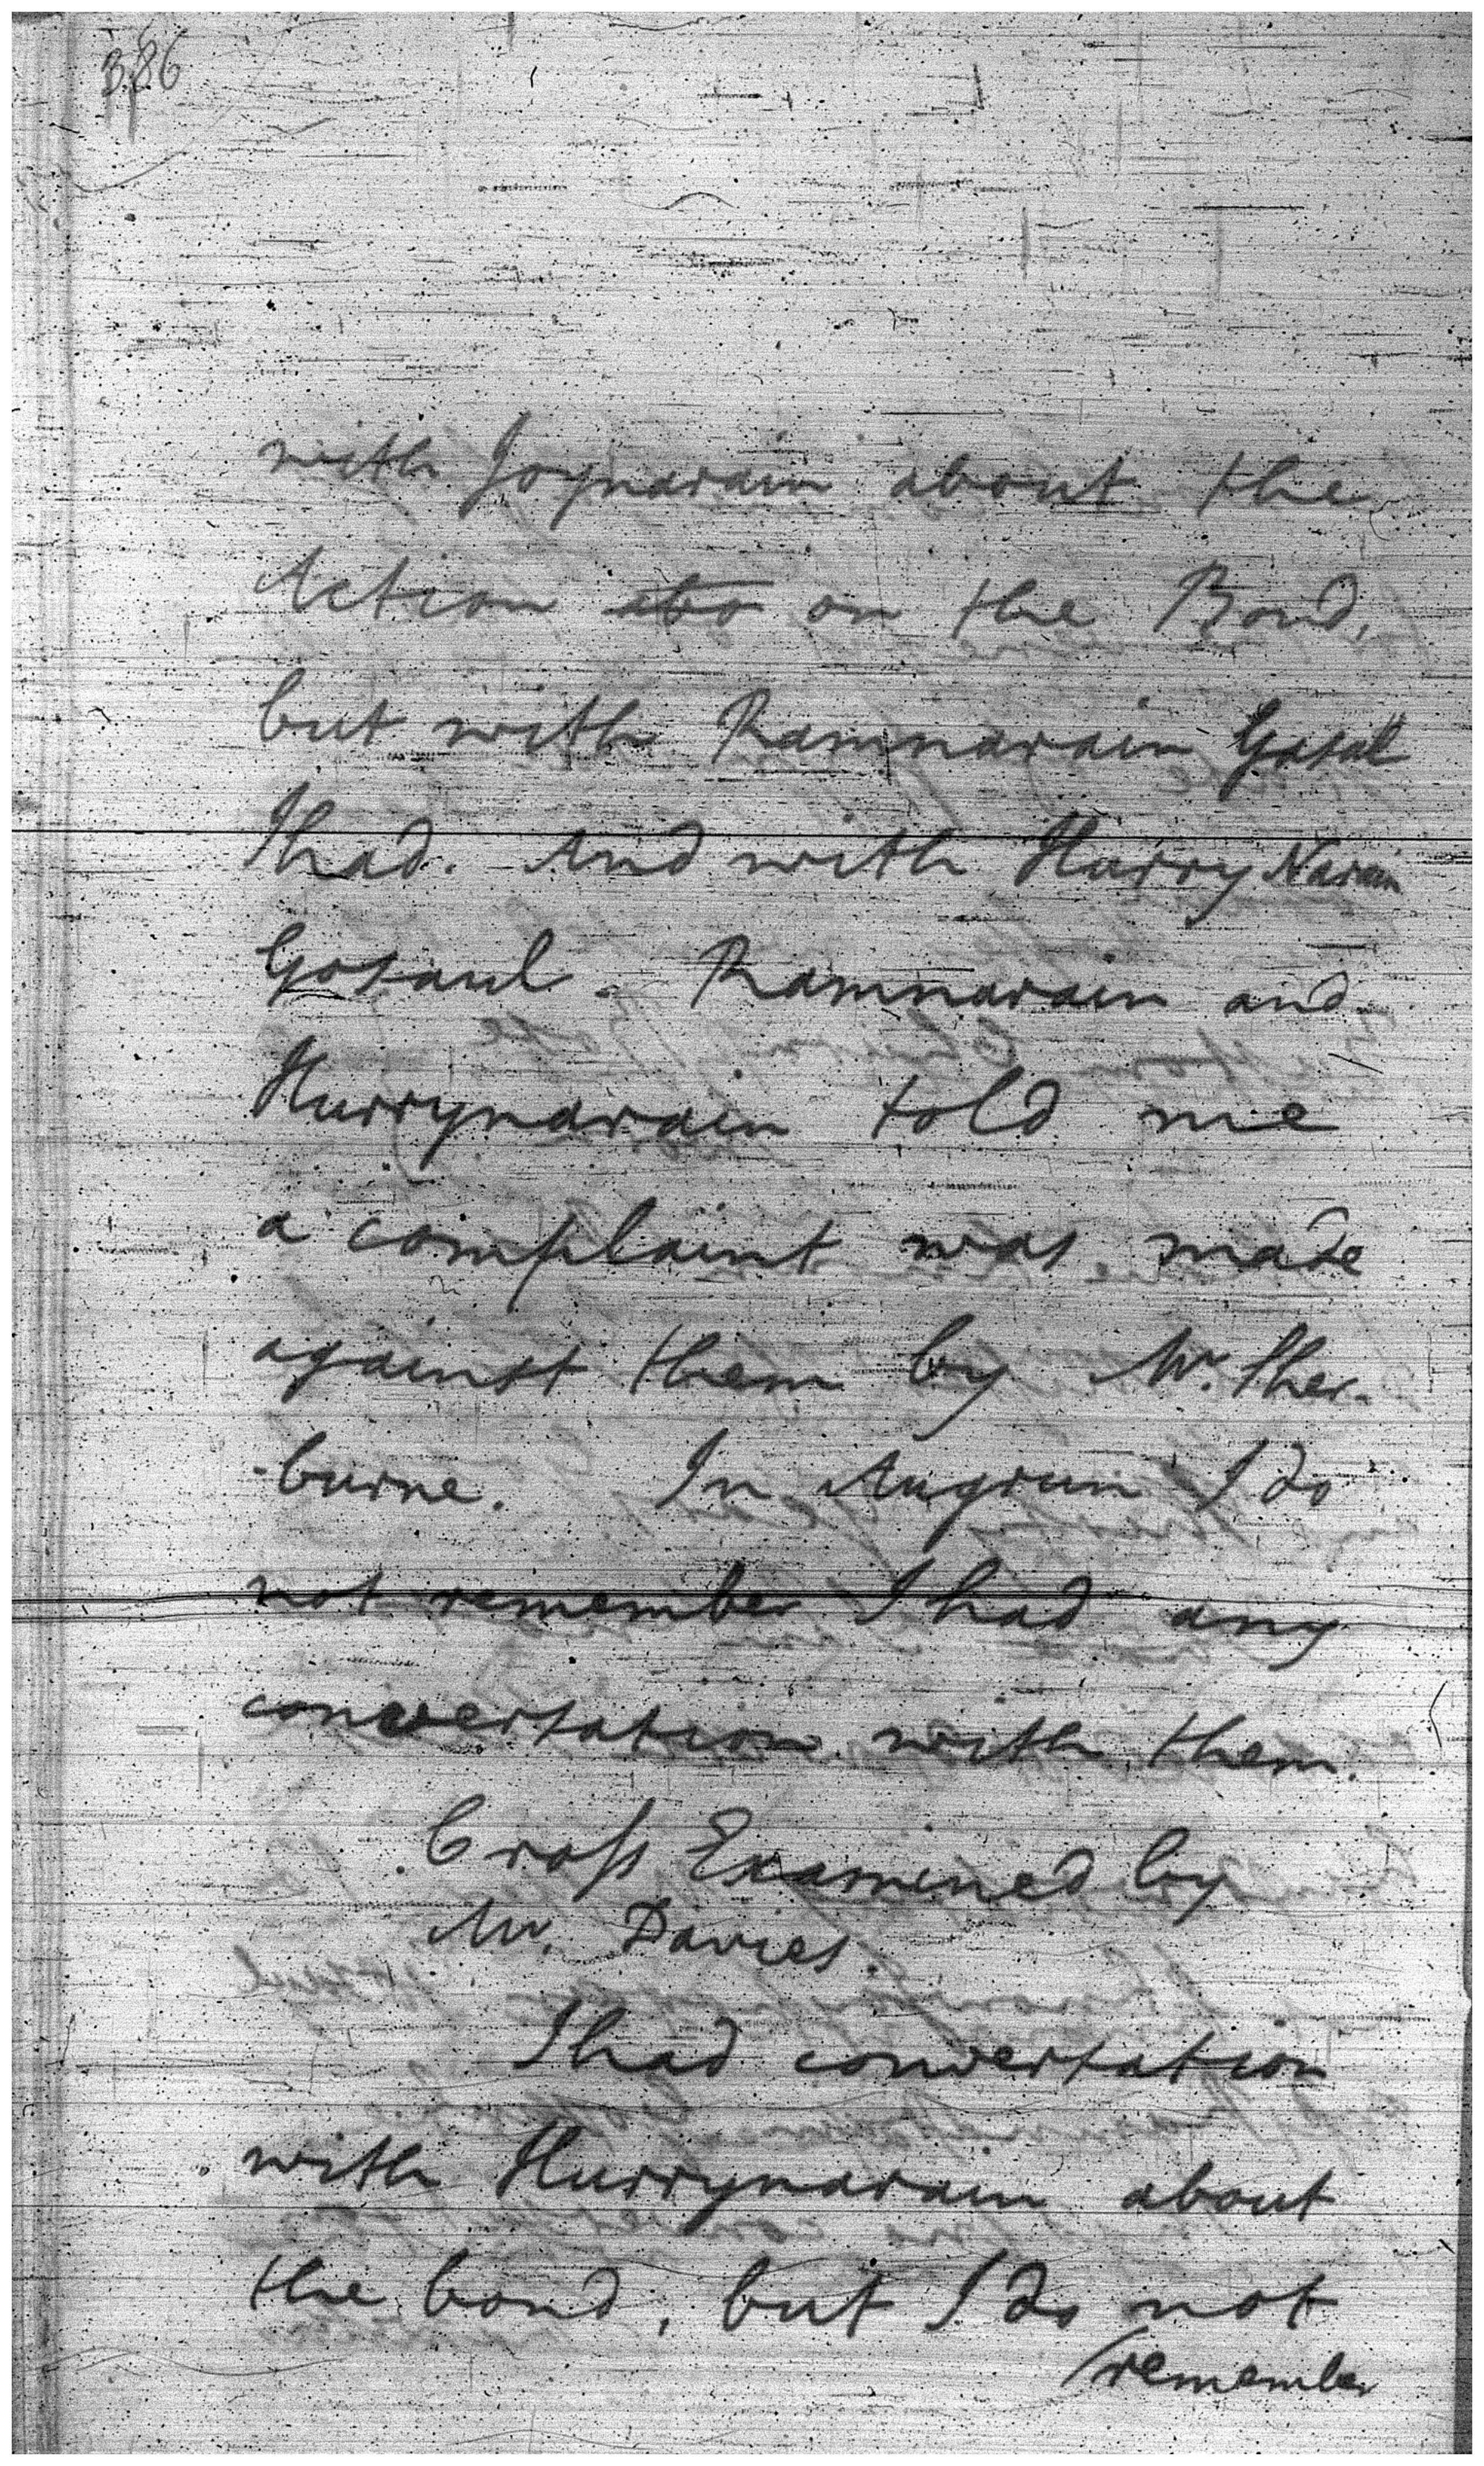 386
with Joynarain about the
Action abo on the Bond,
but with Ramnarain Gosal
I had. And with Hurry Narain
Gosaul. Ramnarain and
Hurrynarain told me
a complaint was made
against them by Mr. Sher-
-burne. In Augrun I do
not remember I had any
conversation with them.
Cross Examined by
Mr. Davies.
I had conversation
with Hurrynarain about
the bond, but I do not
/remember